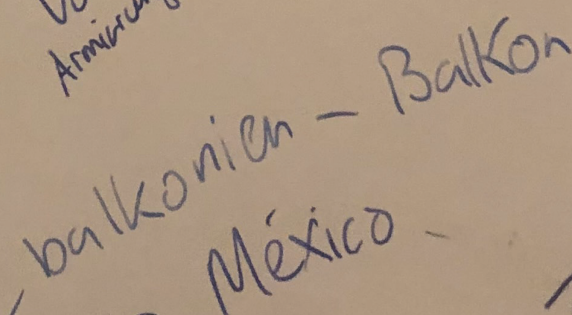 balkonien - Balkon
México -